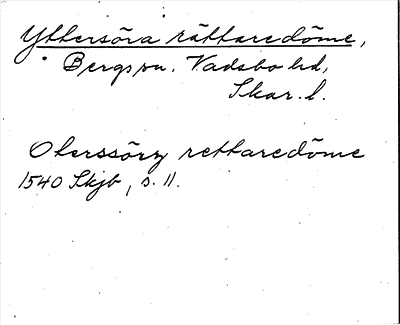 Yttersöra rättaredöme,
Bergs sn. Vadsbo hd,
Skar. l.
Oterssöry rettaredöme
1540 Skjb, s. 11.